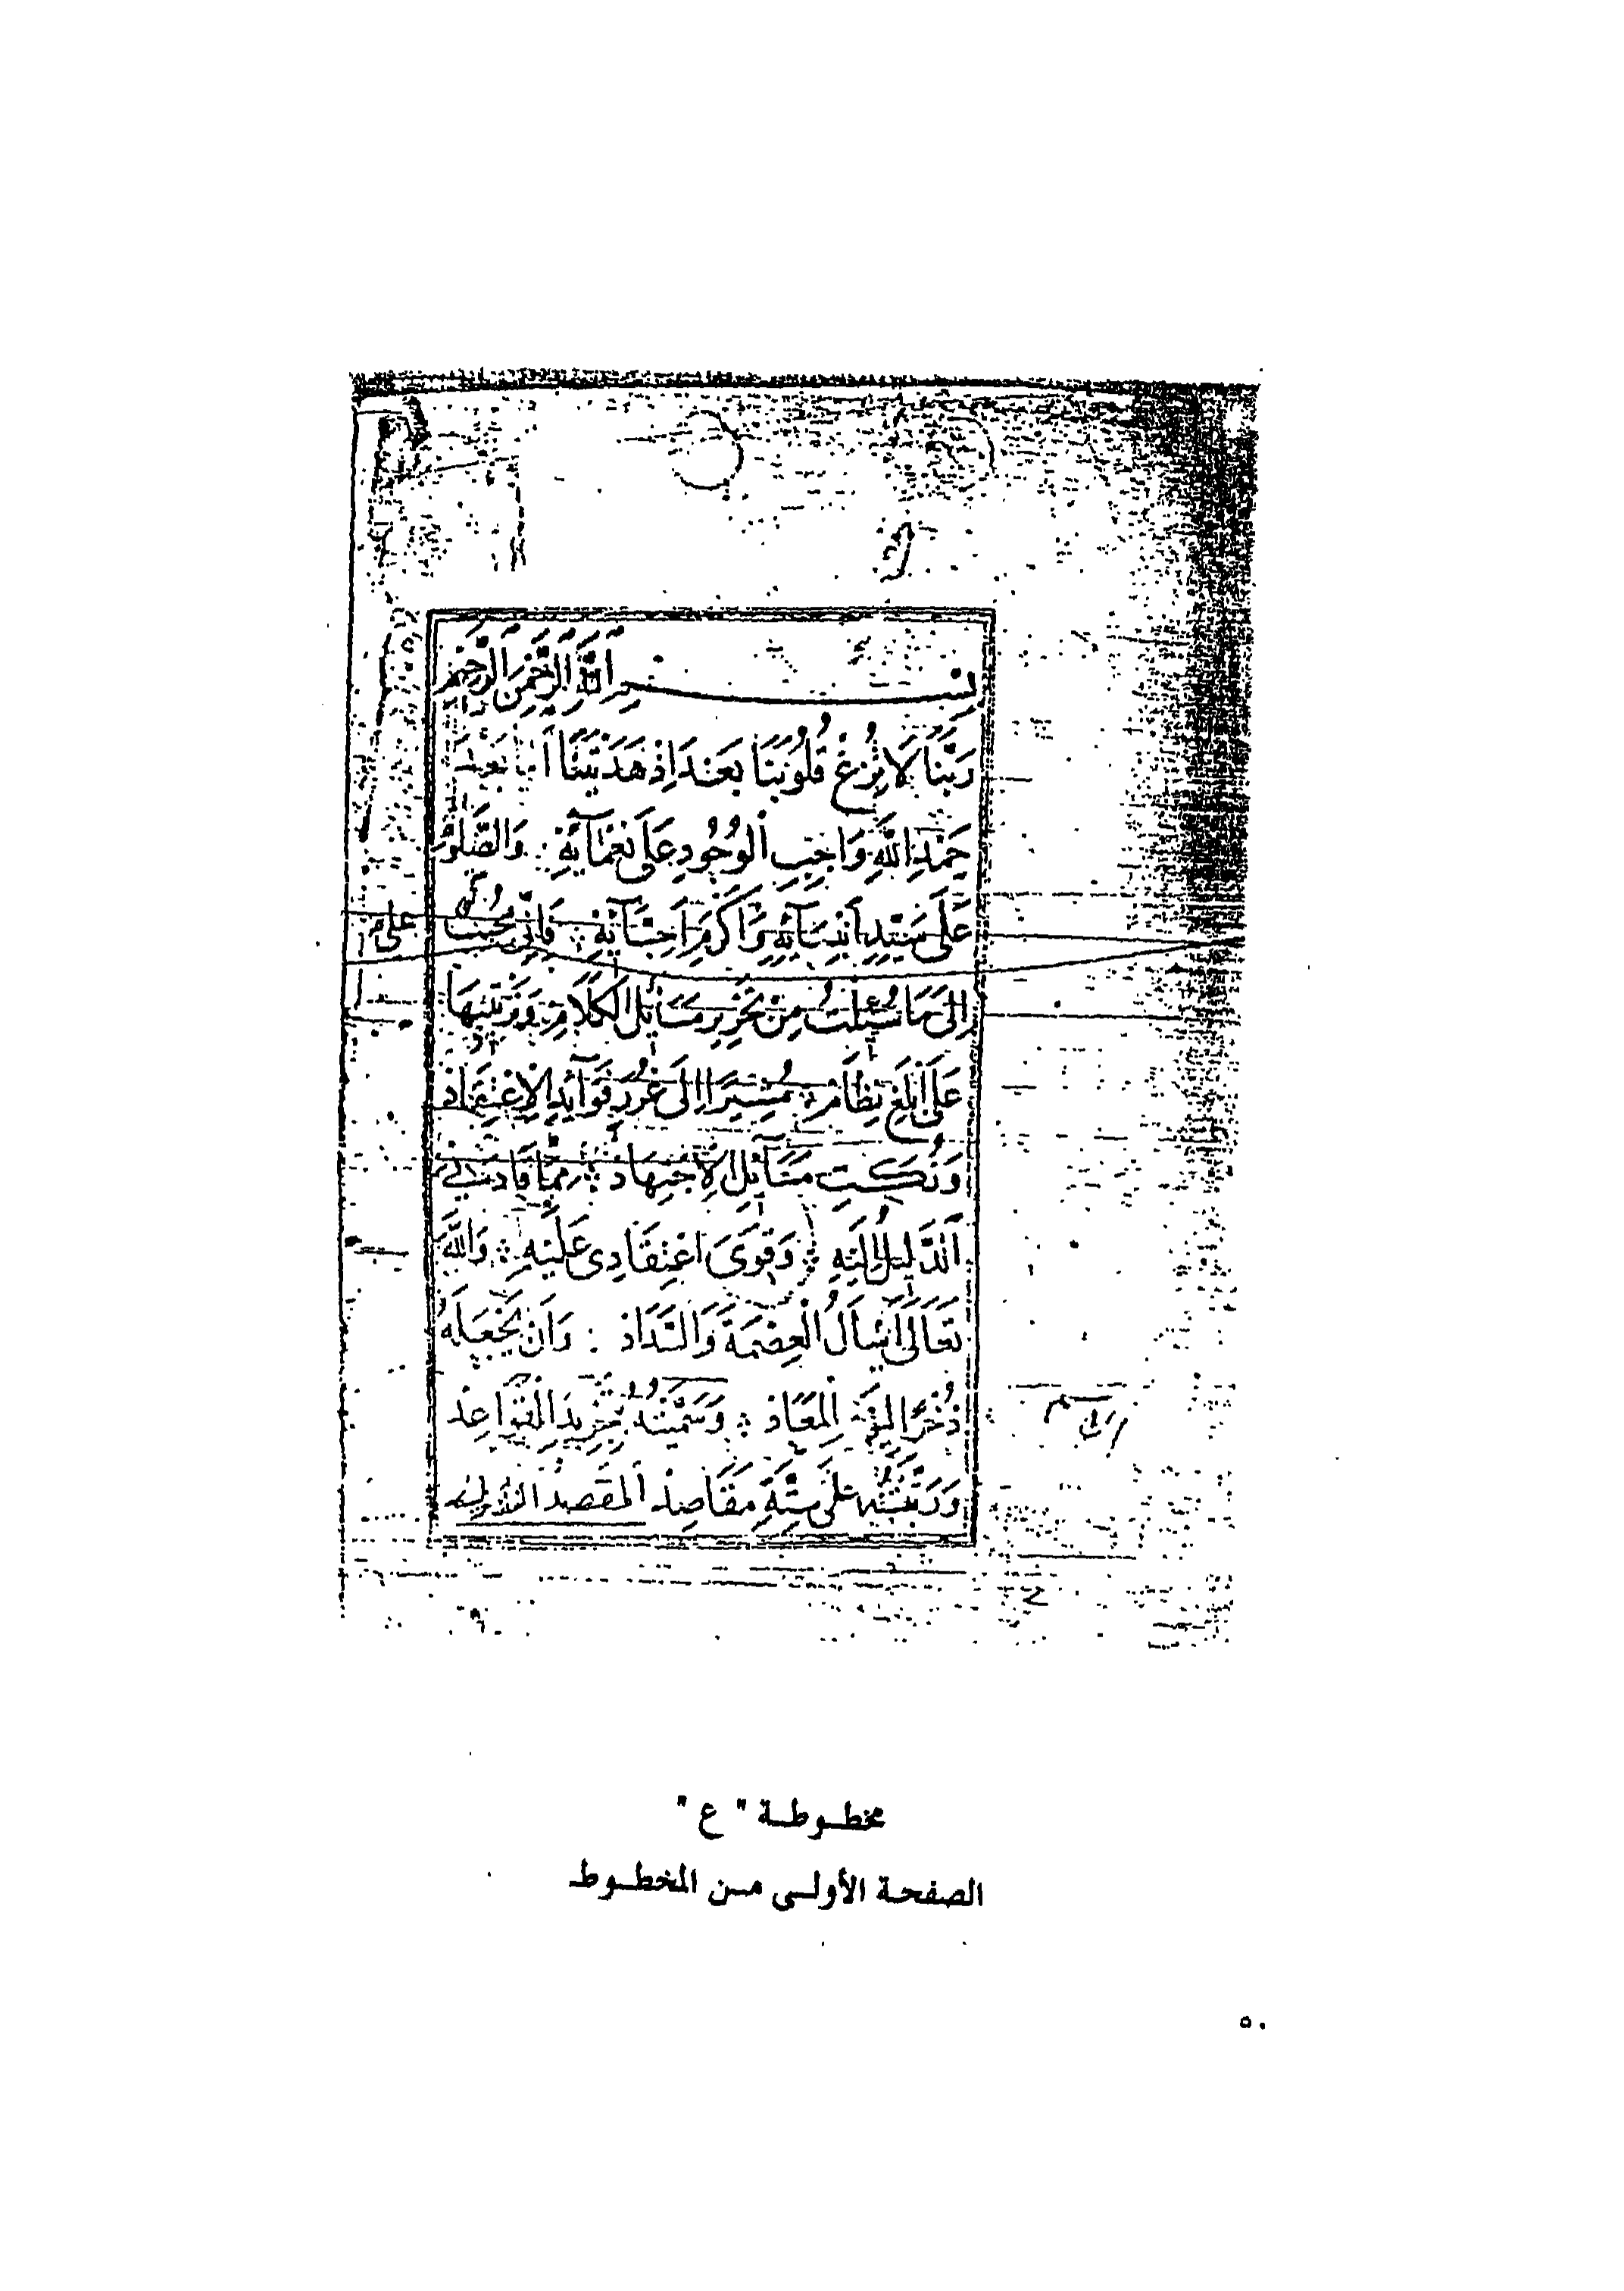 بِسْمِ اللهِ الرَّحْمَنِ الرَّحِيمِ
رَبَّنَا لَا تُزِغْ قُلُوبَنَا بَعْدَ اِذْ هَدَيْتَنَا اَمَّا بَعْدَ
حَمْدِ اللهِ وَاجِبِ الْوُجُودِ عَلَى نَعْمَآئِهِ وَالصَّلٰوةُ
عَلَى سَيِّدِ اَنْبِيَآئِهِ وَاَكْرَمِ اَحِبَّآئِهِ فَاِنِّى مُجِيبٌ
اِلَى مَا سُئِلْتُ مِنْ تَحْرِيرِ مَسَائِلِ الْكَلَامِ وَتَرْتِيبِهَا
عَلَى اَبْلَغِ نِظَامٍ مُشِيرًا اِلَى غُرَرِ فَوَآئِدِ الْاِعْتِقَادِ
وَنُكَتِ مَسَآئِلِ الْاِجْتِهَادِ مِمَّا قَادَنِى
اَلدَّلِيلُ اِلَيْهِ وَقَوِىَ اعْتِقَادِى عَلَيْهِ وَاللهَ
تَعَالَى اَسْأَلُ الْعِصْمَةَ وَالسَّدَادَ وَاَنْ يَجْعَلَهُ
ذُخْرًا لِيَوْمِ الْمَعَادِ وَسَمَّيْتُهُ بِتَجْرِيدِ الْقَوَاعِدِ
وَرَتَّبْتُهُ عَلَى سِتَّةِ مَقَاصِدَ اَلْمَقْصَدُ الْاَوَّلُ
مخطـوطـة " ع "
الصفحة الأولـى مـن المخطـوط
٥٠